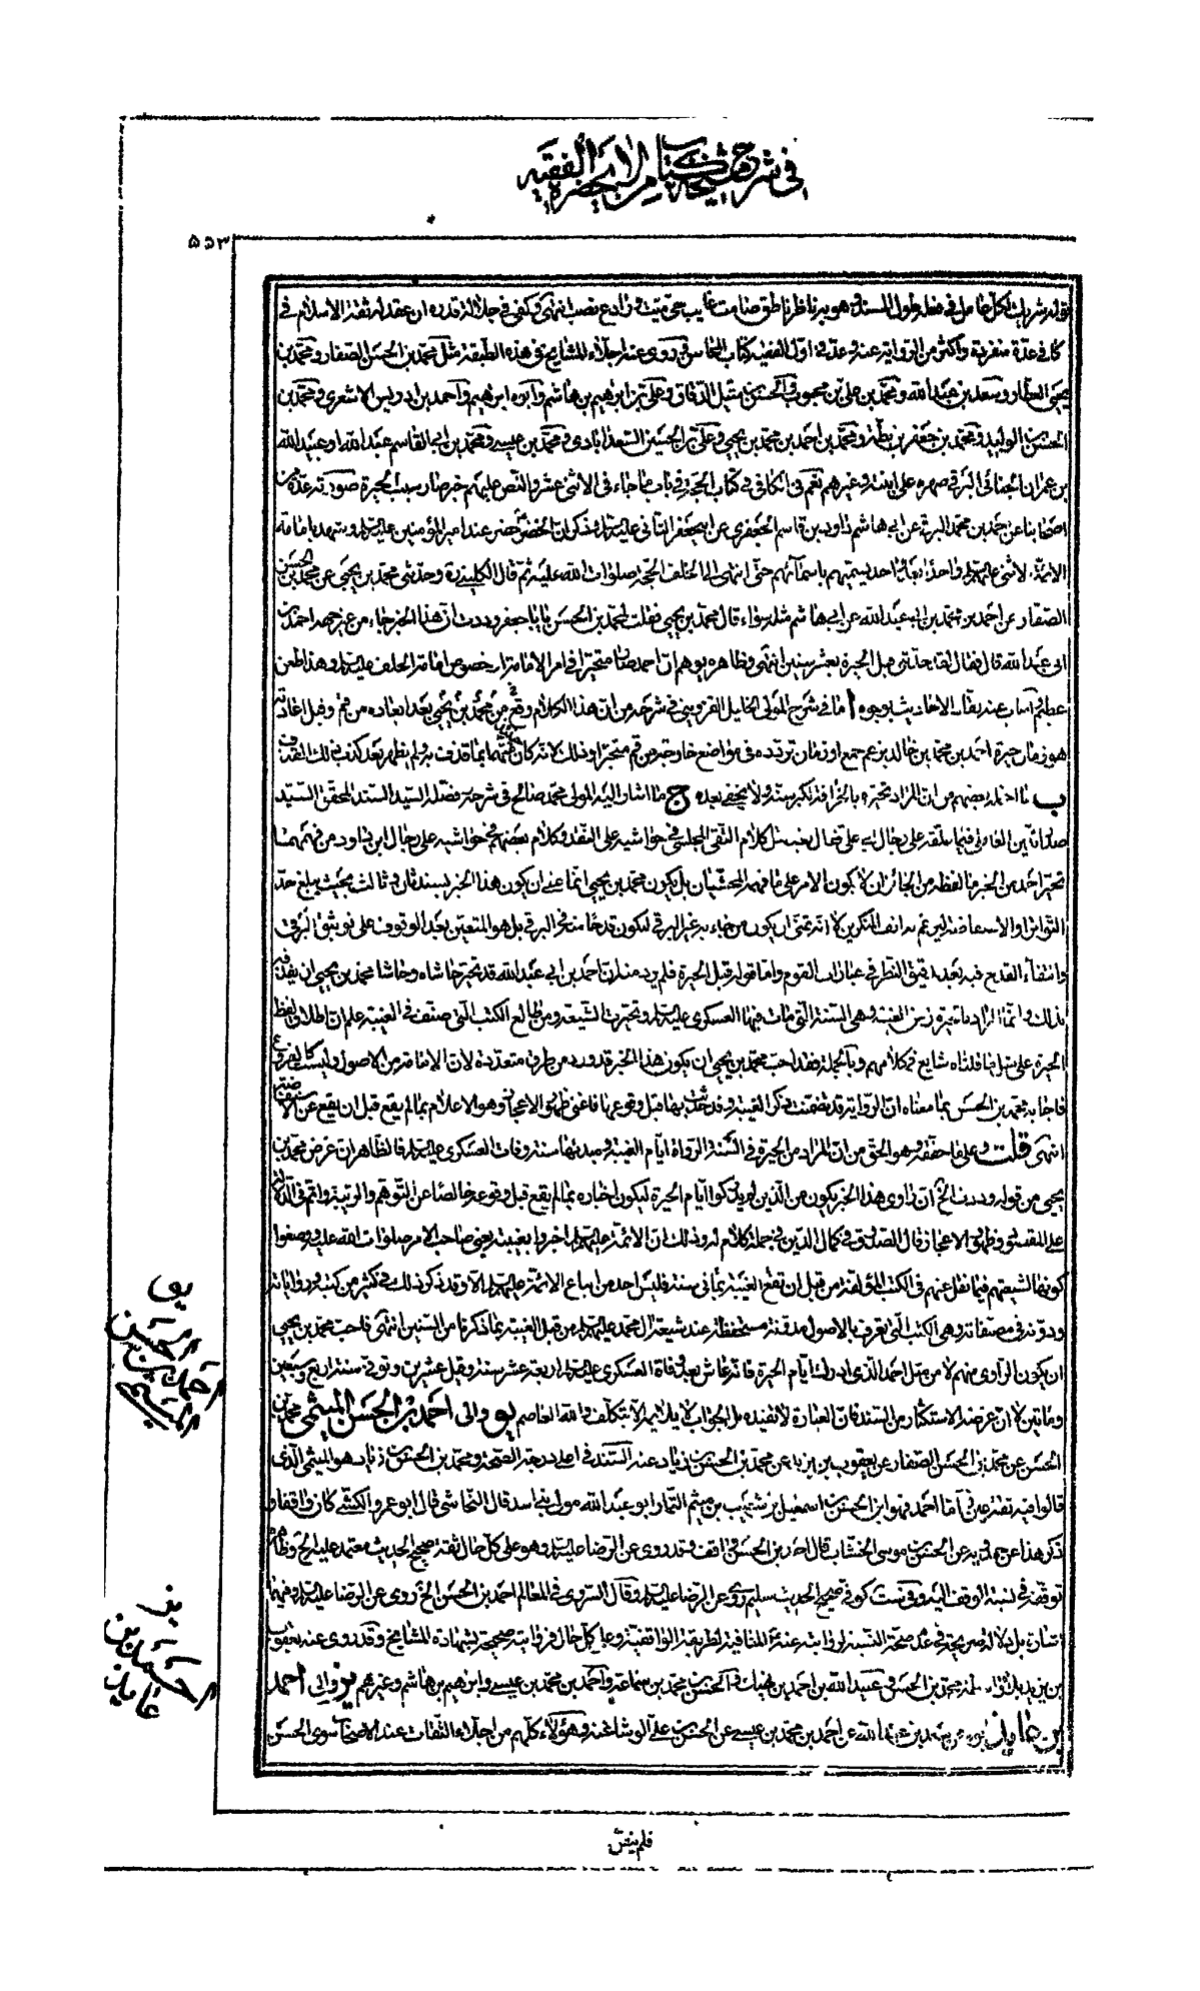 في شرح مشيخة كتاب من لا يحضره الفقيه
٥٥٣
كافي عدة منفردة وأكثر من الرواية عنه وعده في اول الفقيه كتاب المحاسن وروى عنه اجلاء المشايخ في هذه الطبقة مثل محمد بن الحسن الصفار ومحمد بن
يحيى العطار وسعد بن عبد الله ومحمد بن علي بن محبوب والحسن بن متيل الدقاق وعلي بن ابراهيم بن هاشم وأبوه ابراهيم وأحمد بن ادريس الاشعري ومحمد بن
الحسن بن الوليد ومحمد بن جعفر بن بطة ومحمد بن احمد بن محمد بن يحيى وعلي بن الحسين السعدابادي ومحمد بن عيسى ومحمد بن ابي القاسم عبد الله او عبيد الله
بن عمران الجنابي البرقي صهره على ابنته وغيرهم نعم في الكافي في كتاب الحجة في باب ما جاء في الاثني عشر والنص عليهم خبر صار سبب لحيرة صورته عدة من
اصحابنا عن احمد بن محمد البرقي عن ابي هاشم داود بن قاسم الجعفري عن ابي جعفر الثاني عليه السلام وذكر ان الخضر حضر عند امير المؤمنين عليه السلام وشهد بامامة
الائمة الاثني عليهم السلام واحدا بعد واحد يسميهم باسمائهم حتى انتهى الى الخلف الحجة صلوات الله عليه ثم قال الكليني ره وحدثني محمد بن يحيى عن محمد بن الحسن
الصفار عن احمد بن محمد بن ابي عبد الله عن ابي هاشم مثله سواء قال محمد بن يحيى فقلت لمحمد بن الحسن يا با جعفر وددت ان هذا الخبر جاء من غير جهة احمد بن
ابي عبد الله قال فقال لقد حدثني قبل الحيرة بعشر سنين انتهى وظاهره يوهم ان احمد صار متحيرا في امر الامامة او خصوص امامة الخلف عليه السلام وهذا طعن
عظيم اجاب عنه نقاد الاحاديث بوجوه ا ما في شرح المولى الخليل القزويني في شرحه من ان هذا الكلام وقع من محمد بن يحيى بعد ابعاده من قم وقبل اعادته
هو زمان حيرة احمد بن محمد بن خالد بزعم جمع او زمان تردده في مواضع خارجة من قم متحيرا وذلك لانه كان اتهمه بما قذف به ولم يظهر بعد كذب ذلك القذف
ب ما احتمله بعضهم من ان المراد تحيره بالخرافة لكبر سنه ولا يخفى بعده ج ما اشار اليه المولى محمد صالح في شرحه وفصله السيد السند المحقق السيد
صدر الدين العاملي فيما علقه على رجال ابي علي فقال بعد نقل كلام التقي المجلسي في حواشيه على النقد وكلام بعضهم في حواشيه على رجال ابن داود من فهمهما
تحير احمد من الخبر ما لفظه من الجائز ان لا يكون الامر على ما فهمه المحشيان بل يكون محمد بن يحيى انما عنى ان يكون هذا الخبر بسند ثان وثالث بحيث يبلغ حد
التواتر او الاستفاضة ليرغم به انف المنكرين لا انه تمنى ان يكون من جاء به غير البرقي ليكون قدحا منه في البرقي بل هو المتعين بعد الوقوف على توثيق البرقي
وانتفاء القدح فيه بعد تدقيق النظر في عبارات القوم واما قوله قبل الحيرة فلم يرد منه ان احمد بن ابي عبد الله قد تحير حاشاه وحاشا محمد بن يحيى ان يقذفه
بذلك وانما المراد بالحيرة زمن الغيبة وهي السنة التي مات فيها العسكري عليه السلام وتحيرت الشيعة ومن طالع الكتب التي صنفت في الغيبة علم ان اطلاق لفظ
الحيرة على مثل ما قلناه شايع في كلامهم وبالجملة فقد احب محمد بن يحيى ان يكون هذا الخبر قد ورد من طرق متعددة لان الامامة من الاصول وليست كالفروع
فاجابه محمد بن الحسن بما معناه ان الرواية قد تضمنت ذكر الغيبة وقد حدث بها قبل وقوعها فاغنى ظهور الاعجاز وهو الاعلام بما لم يقع قبل ان يقع عن الاستفاضة
انتهى قلت وعلى ما حققه وهو الحق من ان المراد من الحيرة في السنة الرواة ايام الغيبة ومبدئها سنة وفات العسكري عليه السلام فالظاهر ان غرض محمد بن
يحيى من قوله وددت الخ ان راوي هذا الخبر يكون من الذين لم يدركوا ايام الحيرة ليكون اخباره بما لم يقع قبل وقوعه خالصا عن التوهم والريبة واتم في الدلالة
على المقصود وظهور الاعجاز قال الصدوق في كمال الدين في جملة كلام له وذلك ان الائمة عليهم السلام اخبروا بغيبته يعني صاحب الامر صلوات الله عليه ووصفوا
كونها لشيعتهم فيما نقل عنهم في الكتب المؤلفة من قبل ان تقع الغيبة بمائتي سنة فليس احد من اتباع الائمة عليهم السلام الا وقد ذكر ذلك في كثير من كتبه ورواياته
ودونه في مصنفاته وهي الكتب التي تعرف بالاصول مدونة مستحفظة عند شيعة آل محمد عليهم السلام من قبل الغيبة بما ذكرنا من السنين انتهى فاحب محمد بن يحيى
ان يكون الراوي منهم لا من مثل احمد الذي ادرك ايام الحيرة فانه عاش بعد وفاة العسكري عليه السلام اربعة عشر سنة وقيل عشرين وتوفي سنة اربع وسبعين
ومأتين لا ان غرضه الاستكثار من السند فان العبارة لا تفيده بل الجواب لا يلايمه الا بتكلف والله العاصم يو والى احمد بن الحسن الميثمي محمد بن
الحسن عن محمد بن الحسن الصفار عن يعقوب بن يزيد عن محمد بن الحسن بن زياد عنه السند في اعلى درجة الصحة ومحمد بن الحسن بن زياد هو الميثمي الذي
قالوا فيه ثقة عين أما احمد فهو ابن الحسن بن اسمعيل بن شعيب بن ميثم التمار ابو عبد الله مولى بني اسد قال النجاشي قال ابو عمرو الكشي كان واقفا و
ذكر هذا عن حمدويه عن الحسن بن موسى الخشاب قال احمد بن الحسن واقف وقد روى عن الرضا عليه السلام وهو على كل حال ثقة صحيح الحديث معتمد عليه الخ وظاهره
توقفه في نسبة الوقف اليه وفي ست كوفي صحيح الحديث سليم روى عن الرضا عليه السلام وقال السروي في المعالم احمد بن الحسن الخ روى عن الرضا عليه السلام وفيهما
اشارة بل دلالة صريحة في عدم صحة النسبة لروايته عنه المنافية لطريقة الواقفية وعلى كل حال فروايته صحيحة لشهادة المشايخ وقد روى عنه يعقوب
بن يزيد محمد بن الحسن وعبيد الله بن احمد بن نهيك والحسن بن محمد بن سماعة وأحمد بن محمد بن عيسى وابراهيم بن هاشم وغيرهم يز والى احمد
بن عائذ ابوه عن سعد بن عبد الله عن احمد بن محمد بن عيسى عن الحسن بن علي الوشاء عنه وهؤلاء كلهم من اجلاء الثقات عند الاصحاب سوى الحسن
يو
احمد بن الحسن
الميثمي
يز
احمد بن
عايذ
فلم ينص